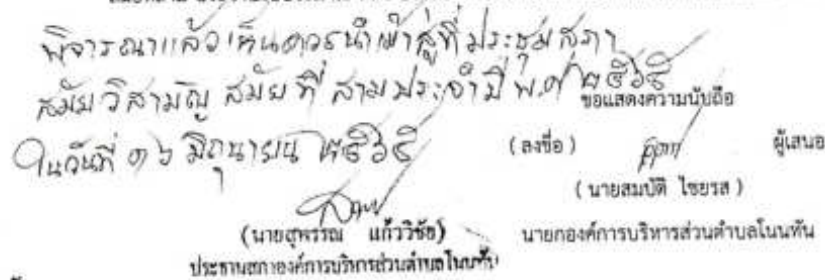 พิจารณาแล้วเห็นควรนำเข้าสู่ที่ประชุมสภา
สมัยวิสามัญ สมัยที่ สามประจำปี พ.ศ ๒๕๖๕
ในวันที่ ๑๖ มิถุนายน ๒๕๖๕
ขอแสดงความนับถือ
(ลงชื่อ) ผู้เสนอ
(นายสมบัติ ไชยรส)
นายกองค์การบริหารส่วนตำบลโนนทัน
(นายสุพรรณ แก้ววิชัย)
ประธานสภาองค์การบริหารส่วนตำบลโนนทัน